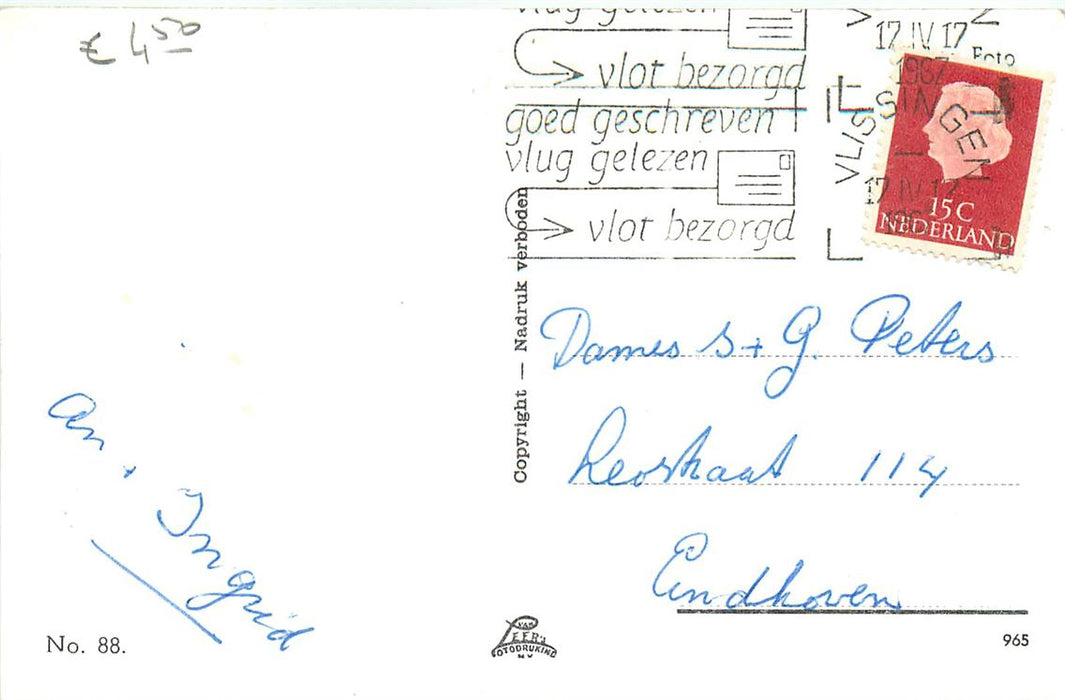 € 4,50
vlug gelezen
vlot bezorgd
goed geschreven
vlug gelezen
vlot bezorgd
17 IV 17
1967
VLISSINGEN
17 IV 17
Foto
15C
NEDERLAND
Copyright — Nadruk verboden
Dames S + G. Peters
Leostraat 114
Eindhoven
An + Ingrid
No. 88.
VAN
LEER's
FOTODRUKIND
N.V.
965